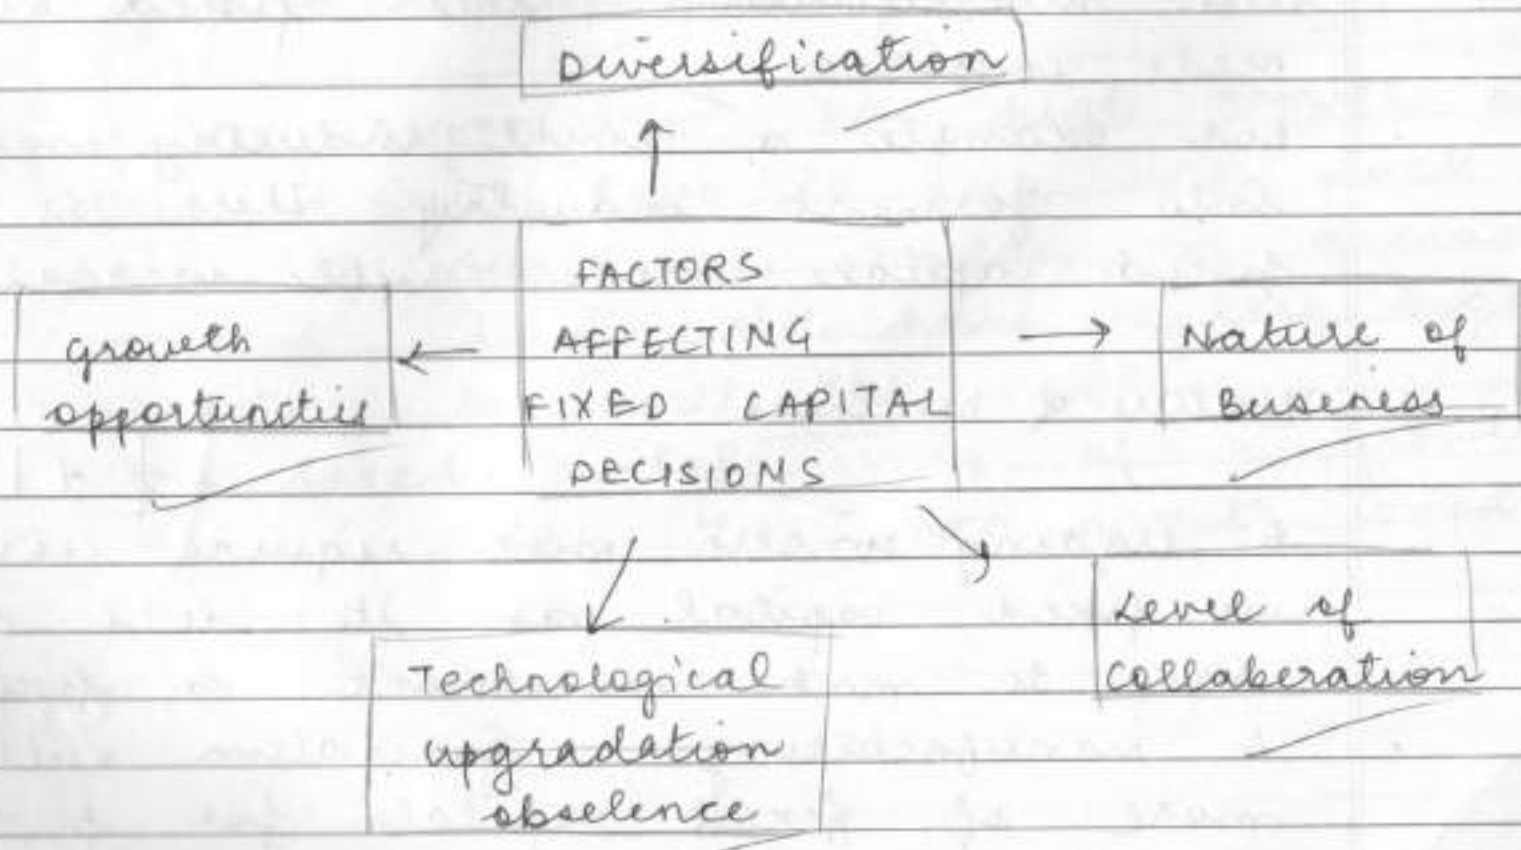 Diversification
FACTORS
AFFECTING
FIXED CAPITAL
DECISIONS
growth
opportunities
Nature of
Business
Level of
Collaberation
Technological
upgradation
obselence